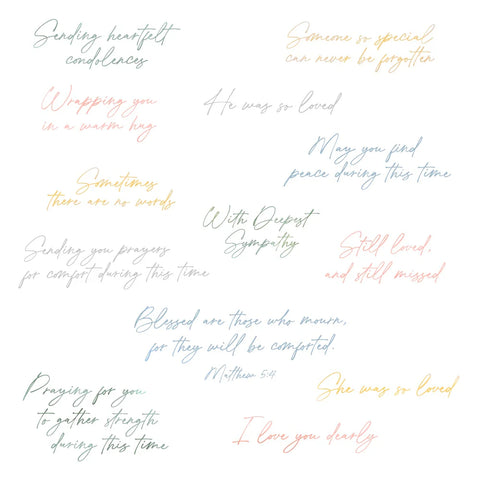 Sending heartfelt
condolences
Someone so special
can never be forgotten
Wrapping you
in a warm hug
He was so loved
May you find
peace during this time
Sometimes
there are no words
With Deepest
Sympathy
Sending you prayers
for comfort during this time
Still loved,
and still missed
Blessed are those who mourn,
for they will be comforted.
Matthew 5:4
Praying for you
to gather strength
during this time
She was so loved
I love you dearly